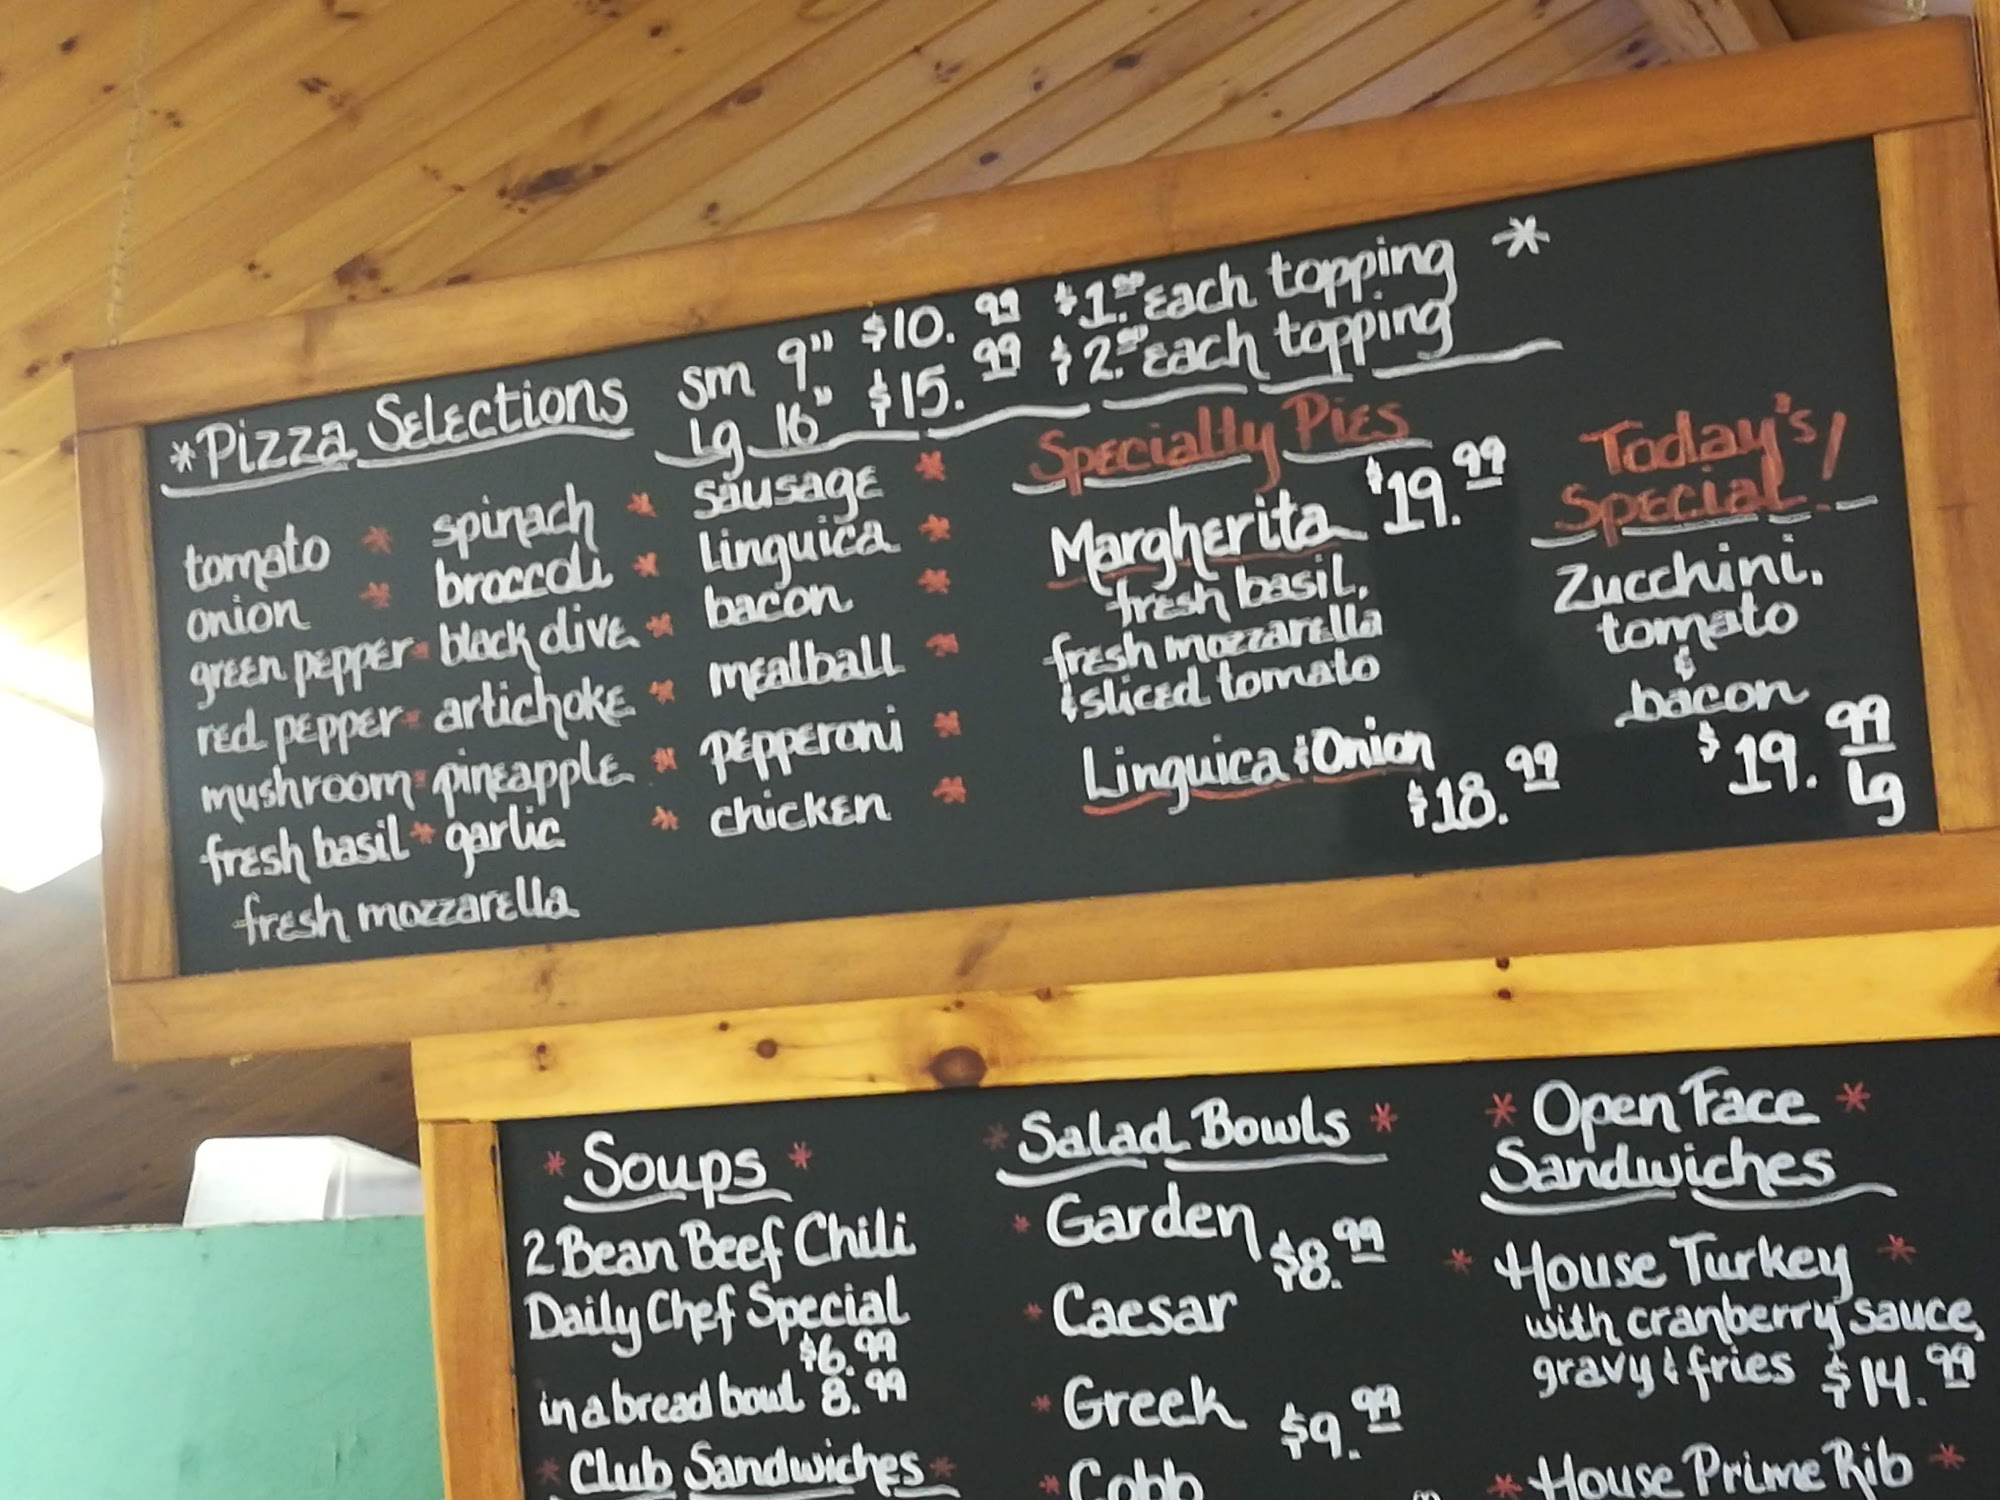 *Pizza Selections
sm 9" $10.99 $1.00 each topping *
lg 16" $15.99 $2.00 each topping
tomato * spinach * sausage *
onion * broccoli * Linguica *
green pepper * black olive * bacon *
red pepper * artichoke * meatball *
mushroom * pineapple * pepperoni *
fresh basil * garlic * chicken *
fresh mozzarella
Specialty Pies
Margherita $19.99
fresh basil,
fresh mozzarella
& sliced tomato
Linguica & Onion
$18.99
Today's
Special!
Zucchini,
tomato
&
bacon
$19.99
lg
* Soups *
2 Bean Beef Chili
Daily Chef Special
$6.99
in a bread bowl 8.99
* Club Sandwiches *
* Salad Bowls *
* Garden $8.99
* Caesar
* Greek $9.99
* Cobb
* Open Face *
Sandwiches
* House Turkey *
with cranberry sauce,
gravy & fries $14.99
* House Prime Rib *